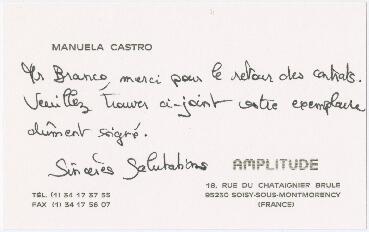 MANUELA CASTRO
Mr Branco, merci pour le retour des contrats.
Veuillez trouver ci-joint votre exemplaire
dûment signé.
Sincères Salutations
AMPLITUDE
18, RUE DU CHATAIGNIER BRULE
TÉL. (1) 34 17 37 55
95230 SOISY-SOUS-MONTMORENCY
FAX (1) 34 17 56 07
(FRANCE)